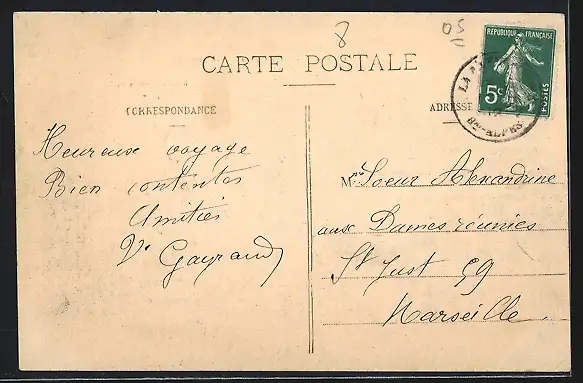 8
05
CARTE POSTALE
RÉPUBLIQUE FRANÇAISE
5c
POSTES
CORRESPONDANCE
ADRESSE
LA
Htes-ALPES
Heureuse voyage
Bien contentes
Amitiés
Ve Gayraud
Mme Soeur Alexandrine
aux Dames réunies
St Just 59
Marseille.